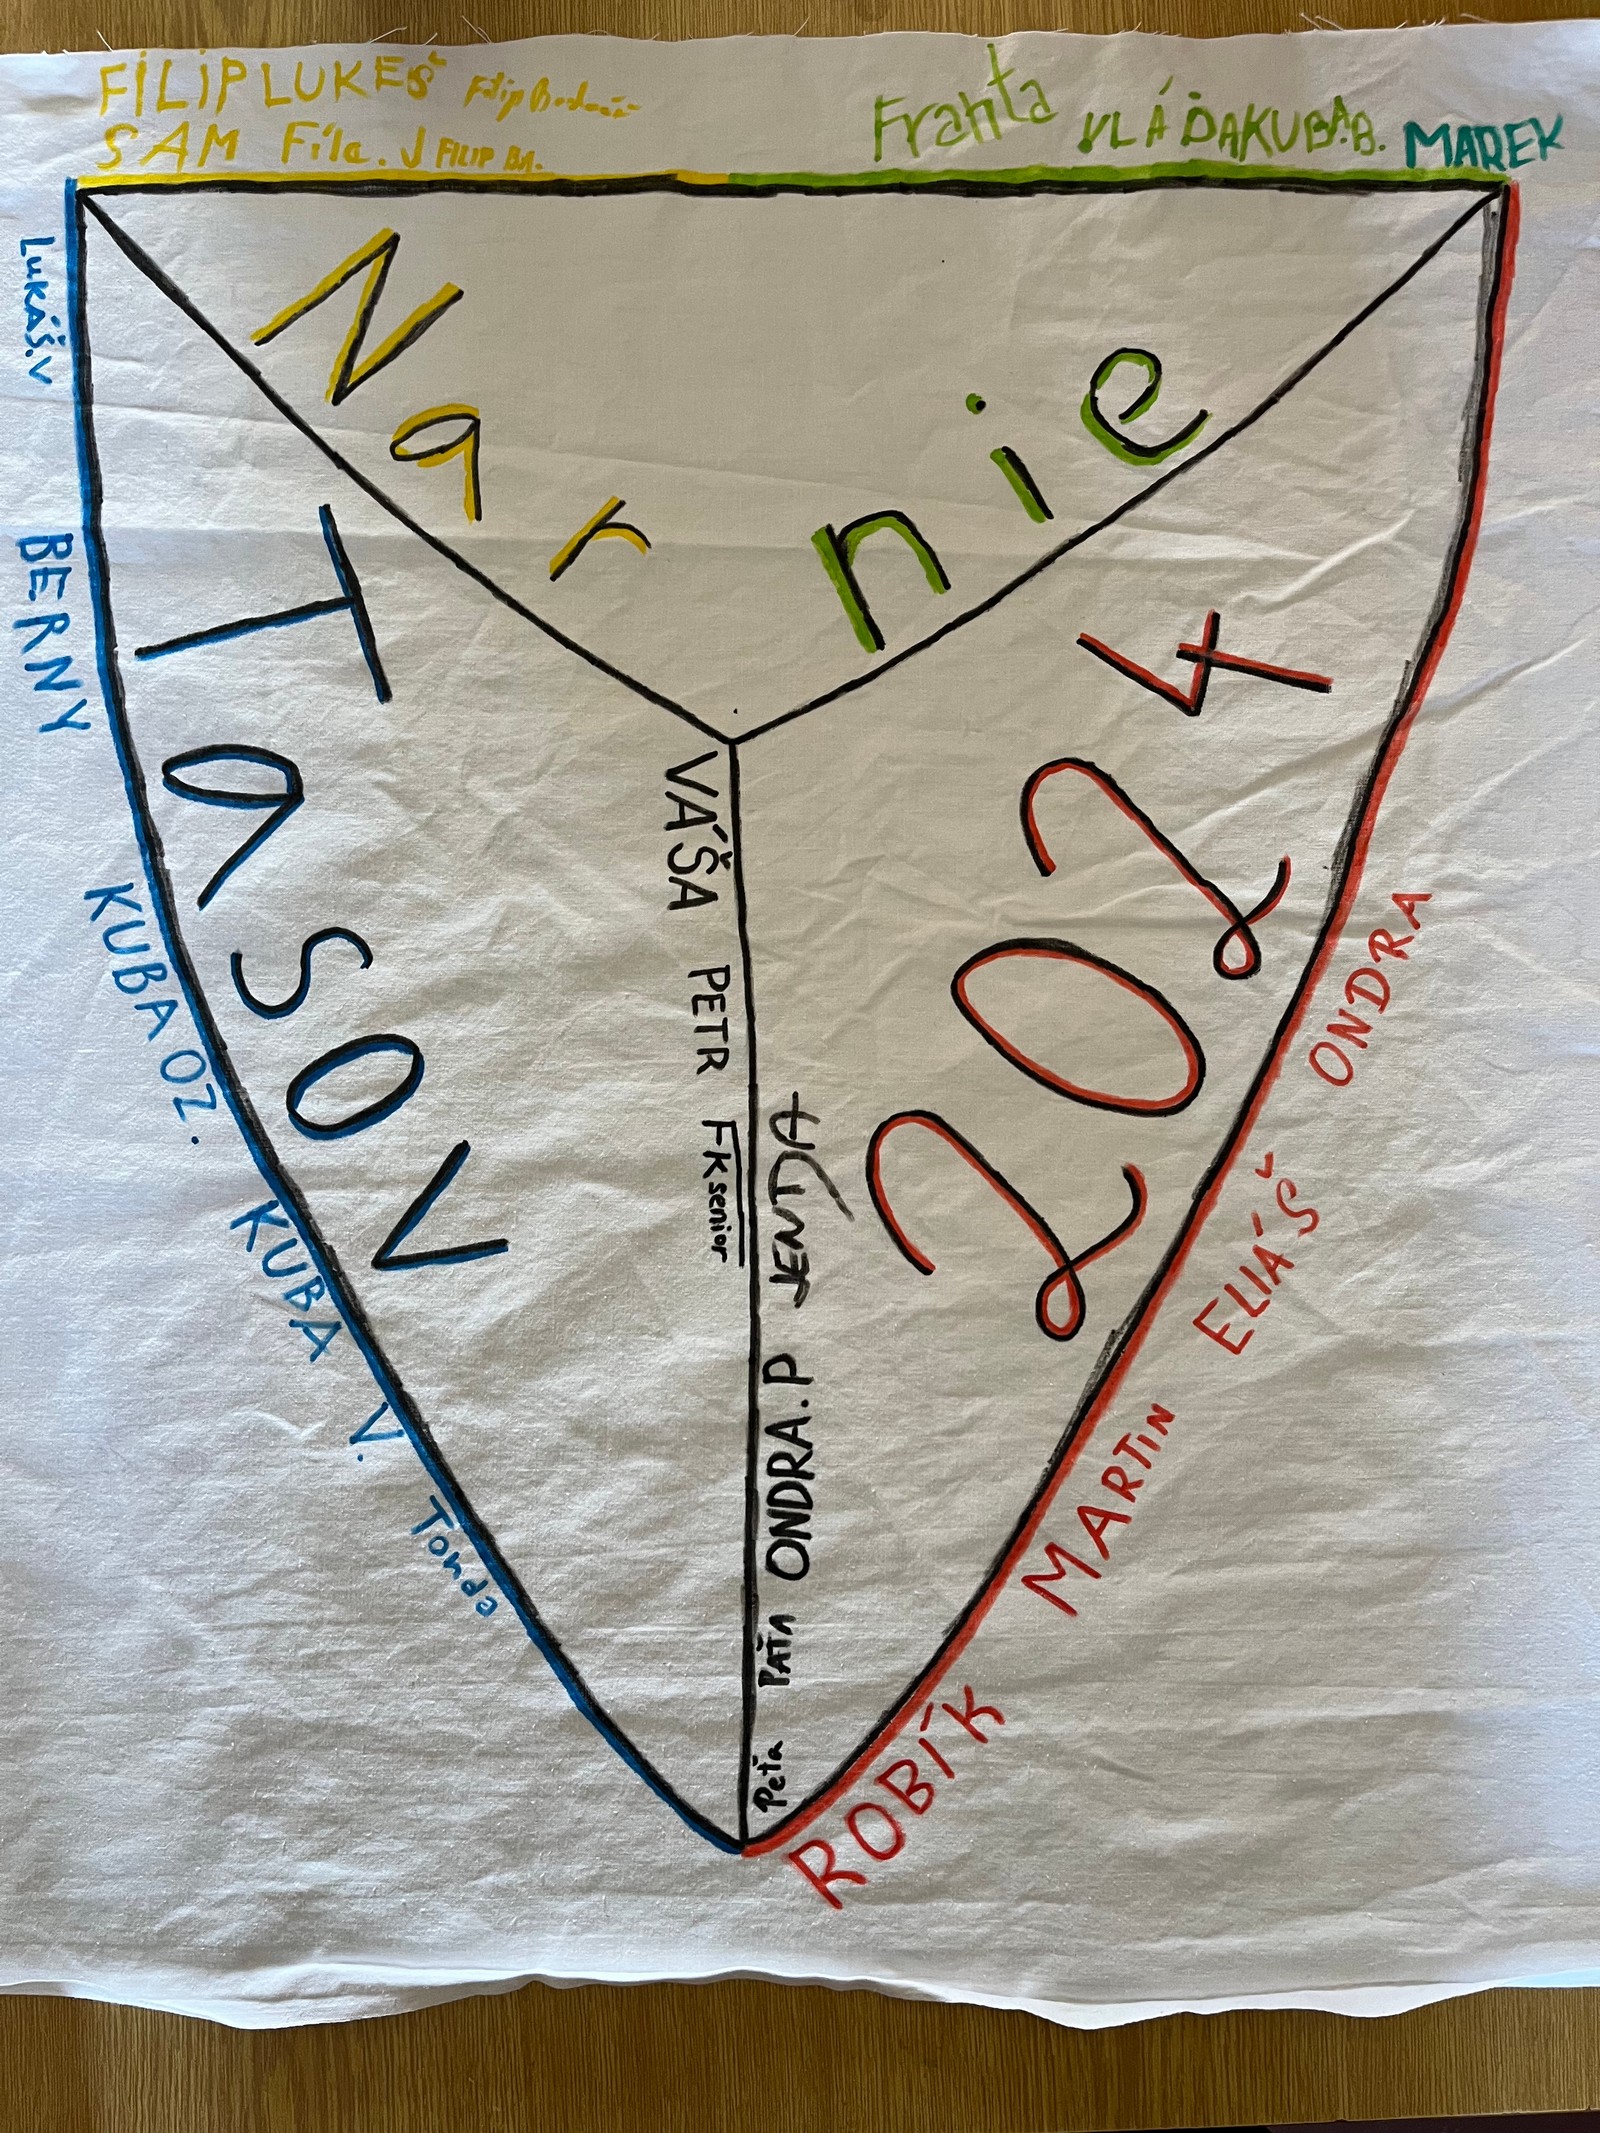 FILIP LUKEŠ Filip
SAM Fíla. J FILIP BA.
Franta VLÁĎA KUBA.B. MAREK
Narnie
LUKÁŠ.V BERNY KUBA OZ. KUBA V. Tonda
TASOV
VÁŠA PETR FK senior
Peťa PÁŤA ONDRA.P JENDA
2024
ROBÍK MARTIN ELIÁŠ ONDRA